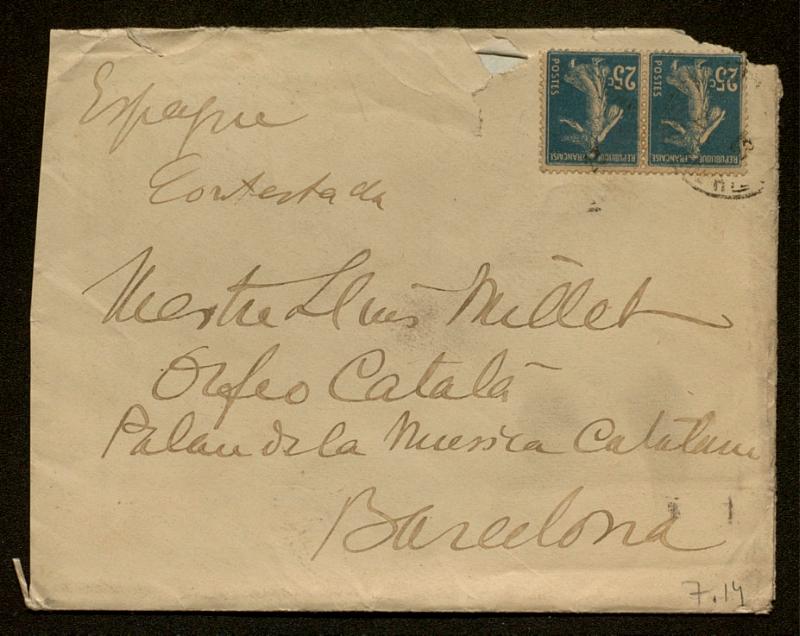 Espagne
Contestada
Mestre Lluis Millet
Orfeo Catalá
Palau de la Musica Catalana
Barcelona
7.14
25c POSTES REPUBLIQUE FRANÇAISE
25c POSTES REPUBLIQUE FRANÇAISE